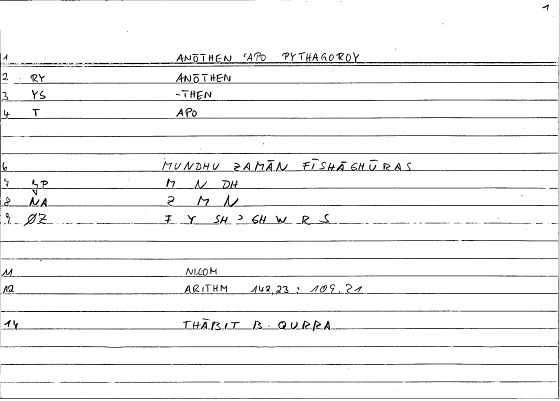 1
1 ANŌTHEN 'APO PYTHAGOROY
2 RY ANŌTHEN
3 YS -THEN
4 T APO
6 MUNDHU ZAMĀN FĪSHĀGHŪRAS
7 M N DH
8 NA Z M N
9 ØZ F Y SH ɔ GH W R S
11 NICOM
12 ARITHM 142,23 : 109,21
14 THĀBIT B. QURRA